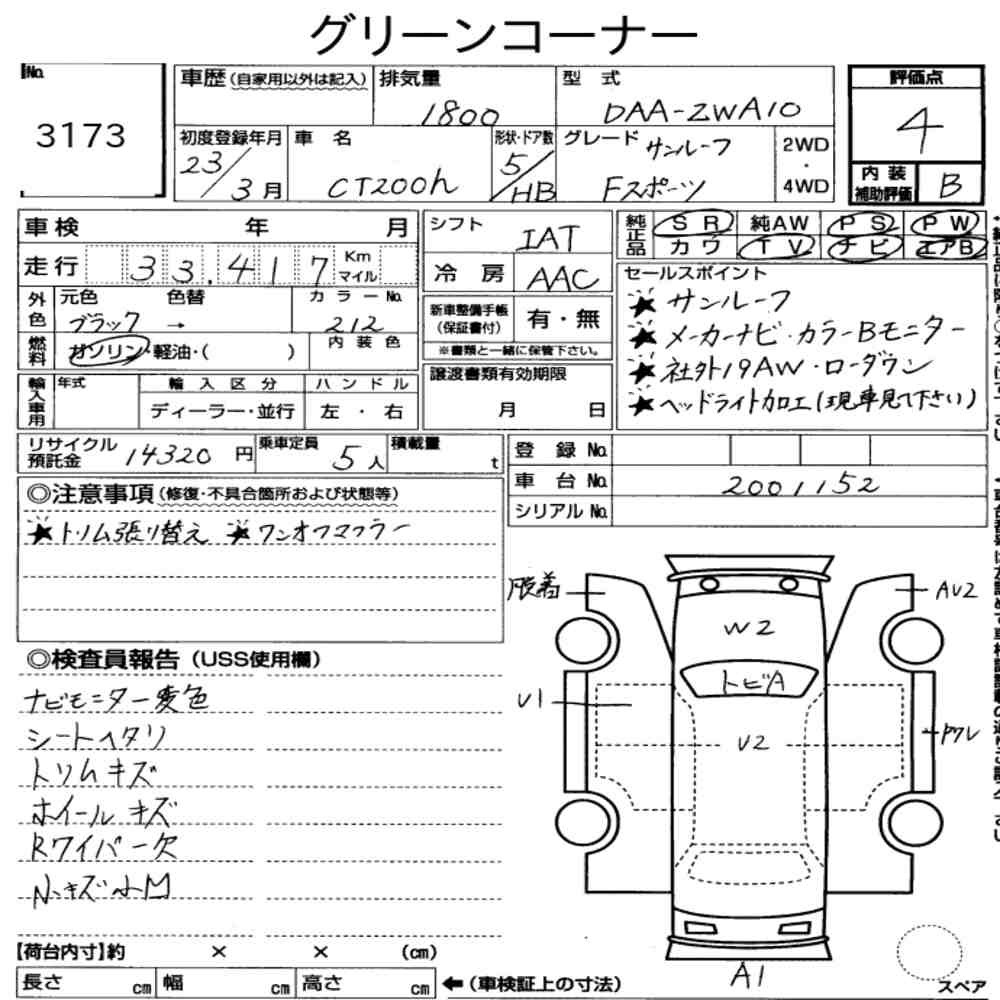 グリーンコーナー
No. 3173
車歴(自家用以外は記入)
排気量 1800
型式 DAA-ZWA10
評価点 4
初度登録年月 23/3月
車名 CT200h
形状・ドア数 5/HB
グレード サンルーフ Fスポーツ
2WD・4WD
内装補助評価 B
車検 年 月
走行 33,417 Km マイル
シフト IAT
冷房 AAC
純正品 SR 純AW PS PW
カワ TV ナビ エアB
外色 元色 ブラック 色替 → カラーNo. 212
燃料 ガソリン・軽油・( ) 内装色
新車整備手帳(保証書付) 有・無
※書類と一緒に保管下さい。
セールスポイント
★サンルーフ
★メーカーナビ・カラーBモニター
★社外19AW・ローダウン
★ヘッドライト加工(現車見て下さい)
輸入車用 年式 輸入区分 ディーラー・並行 ハンドル 左・右
譲渡書類有効期限 月 日
リサイクル預託金 14320円
乗車定員 5人
積載量 t
登録No.
車台No. 2001152
シリアルNo.
◎注意事項(修復・不具合箇所および状態等)
★トリム張り替え ★ワンオフマフラー
◎検査員報告(USS使用欄)
ナビモニター変色
シートヘタリ
トリムキズ
ホイールキズ
Rワイパー欠
小キズ小凹
脱着
AU2
W2
トビA
U1
U2
ドワレ
A1
スペア
【荷台内寸】約 × × (cm)
長さ cm 幅 cm 高さ cm
←(車検証上の寸法)